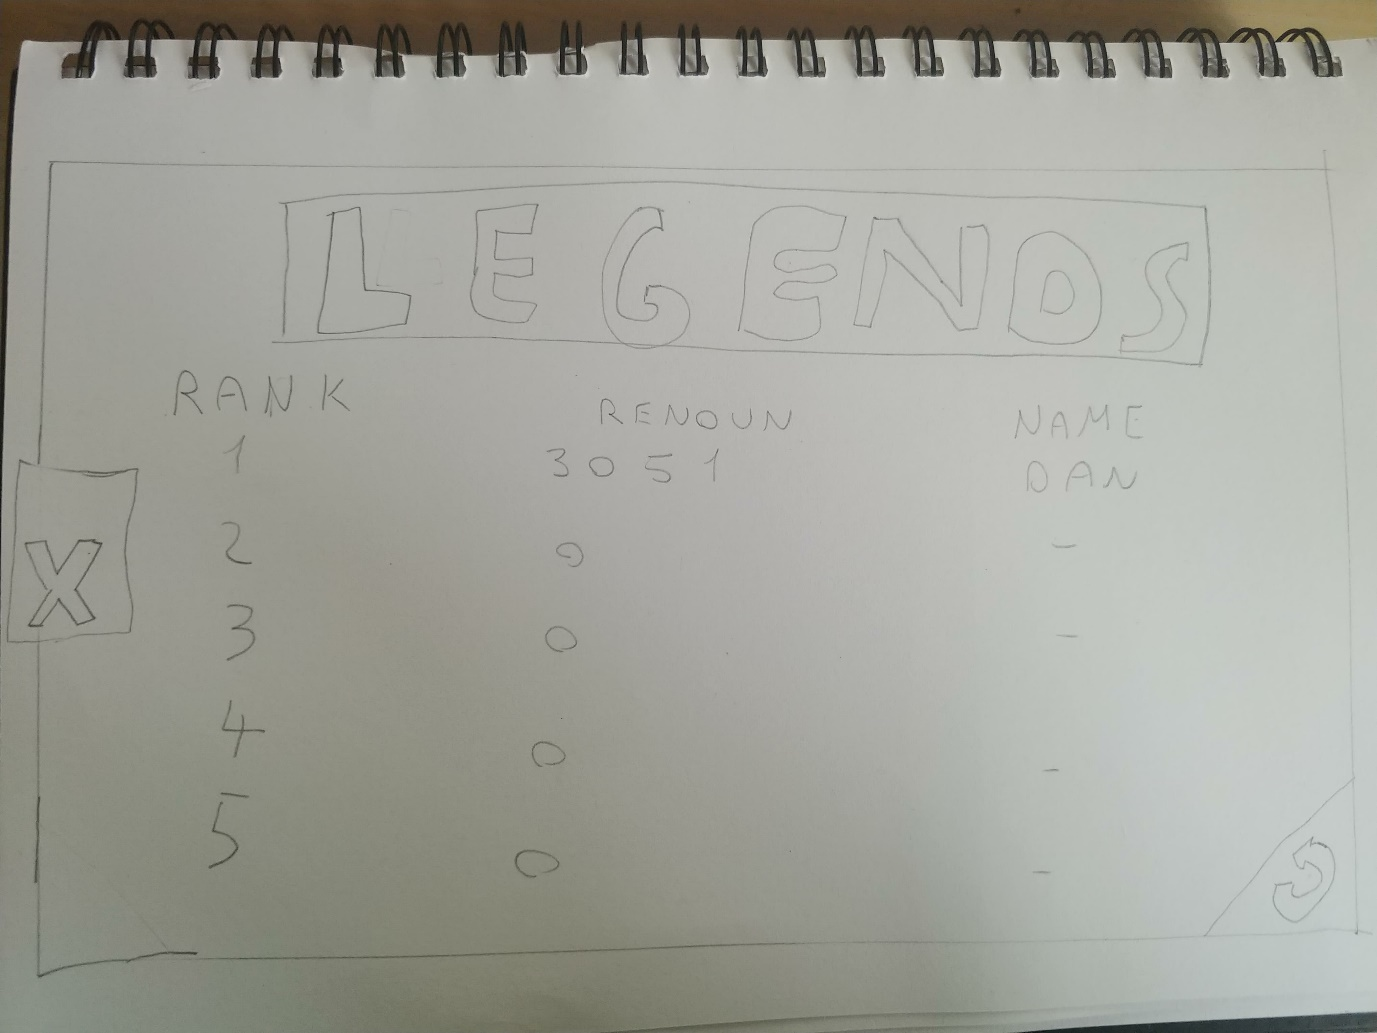 LEGENDS
RANK RENOUN NAME
1 3051 DAN
X
2 0 -
3 0 -
4 0 -
5 0 -